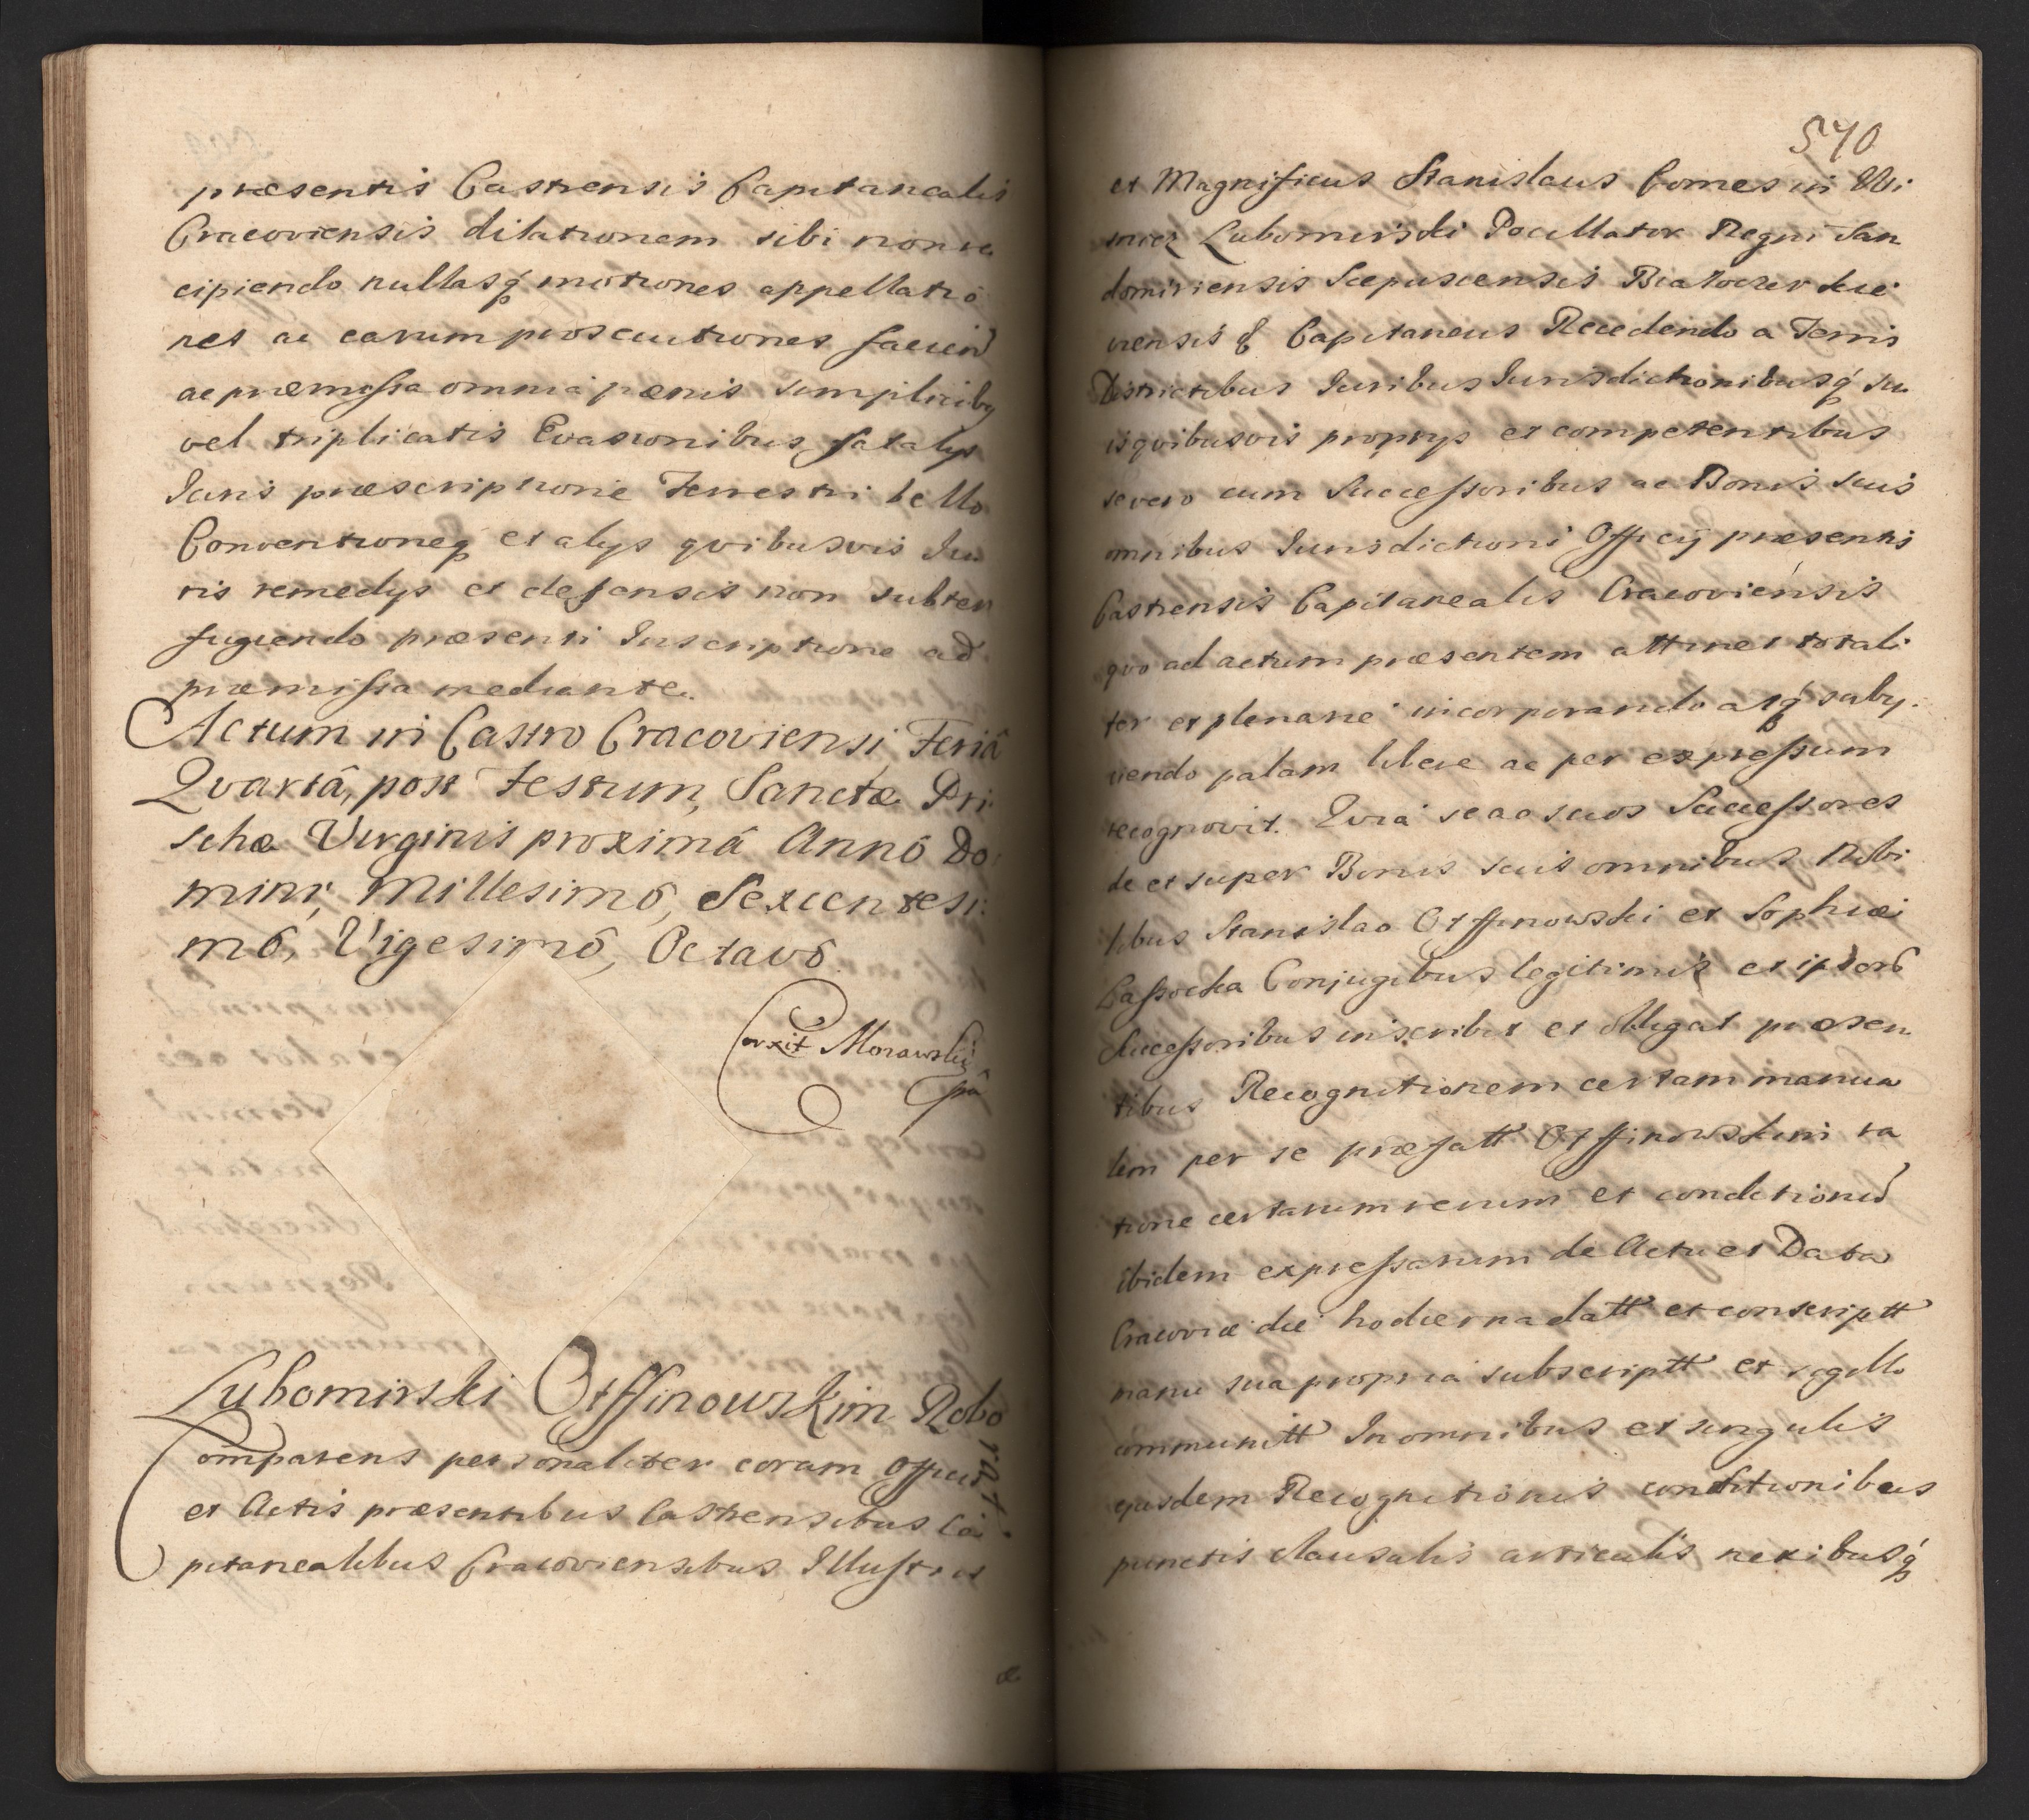 præsentis Castrensis Capitanealis
Cracoviensis dilationem sibi non re
cipiendo nullasq́ motiones appellatio
nes ac earum prosecutiones faciend
ac præmissa omnia pænis simpliciby
vel triplicatis Evasionibus fatalys
Iuris præscriptione Terrestri bello
Conventioneq́ et alys qvibusvis Iu
ris remedys et defensis non subter
fugiendo præsenti Inscriptione ad
præmissa mediante.
Actum in Castro Cracoviensi, Feriâ
Qvartâ, post Festum, Sanctæ Pri
schæ Virginis proximâ Annô Do:
mini, Millesimô, Sexcentesi:
mô, Vigesimô, Octavô
Corxit Morawski
Lubomirski Otffinowskim Robo
rat.
Comparens personaliter coram Officio
et Actis præsentibus Castrensibus Ca
pitanealibus Cracoviensibus Illustris
570
et Magnificus Stanislaus Comes in Wi
snicz Lubomirski Pocillator Regni San
domiriensis Scepusiensis Białocer kie
viensis & Capitaneus Recedendo a Terris
Districtibus Iuribus Iurisdictionibusq́ su
is qvibusvis proprys et competentibus
se vero cum Successoribus ac Bonis suis
omnibus Iurisdictioni Officÿ præsentis
Castrensis Capitanealis Cracoviensis
qvo ad actum præsentem attinet totali
ter et plenarie incorporando atq́ suby:
ciendo palam libere ac per expressum
recognovit. Qvia se ac suos Successores
de et super Bonis suis omnibus Nobi
libus Stanislao Otffinowski et Sophiæ
Lassocka Conjugibus legitimis et ipsorō
Successoribus inscribit et obligat præsen
tibus Recognitionem certam manua
lem per se præfatt Otffinowskim ra
tione certarum rerum et conditionū
ibidem expressarum de Actu et Data
Cracoviæ die hodierna datt et conscriptt
manu sua propria subscriptt et sigillo
communitt In omnibus et singulis
ejusdem Recognitionis conditionibus
punctis clausulis articulis nexibusq́